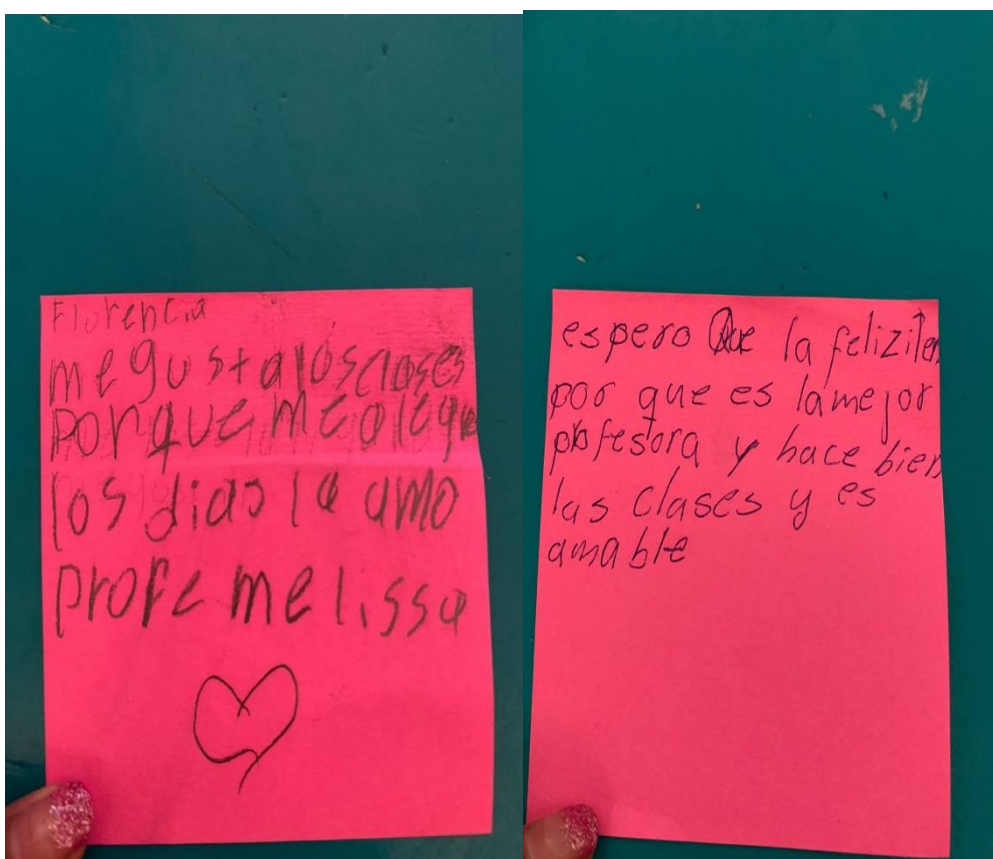 Florencia
me gusta lós clases
porque me alegra
los dias la amo
profe melissa
espero Que la feliziten
por que es la mejor
profesora y hace bien
las clases y es
amable